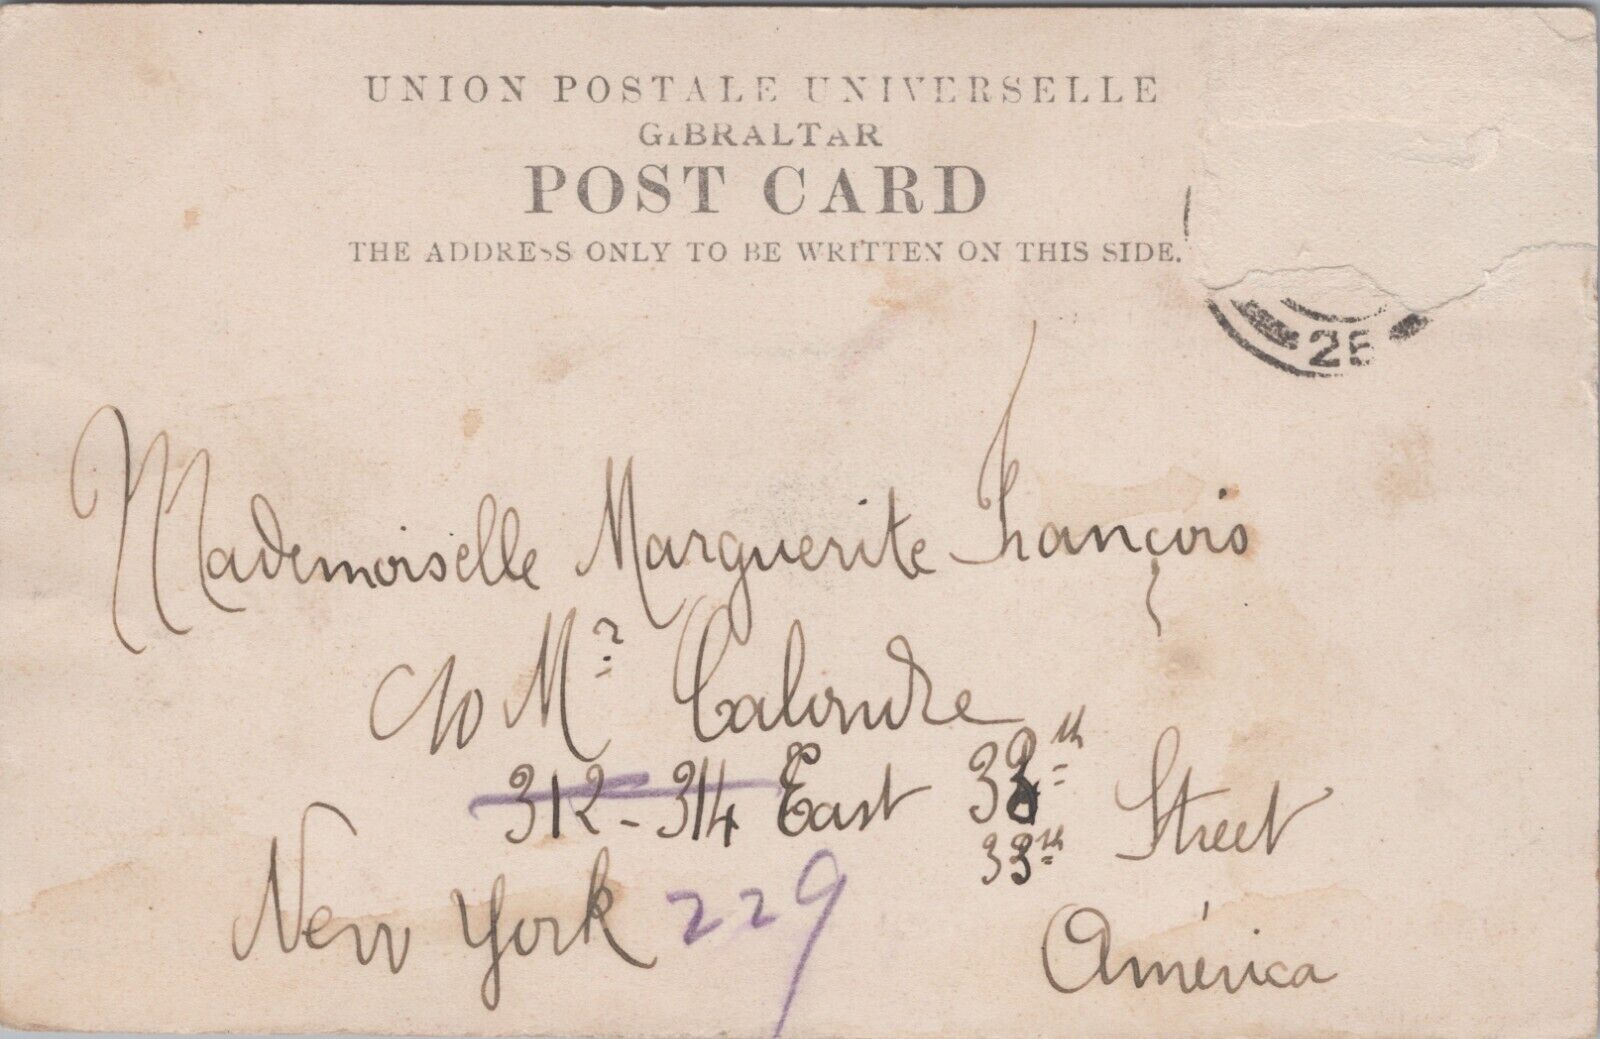 UNION POSTALE UNIVERSELLE
GIBRALTAR
POST CARD
THE ADDRESS ONLY TO BE WRITTEN ON THIS SIDE.
Mademoiselle Marguerite François
c/o Mr Calondre
312-314 East 33th Street
33th
New York 229
América